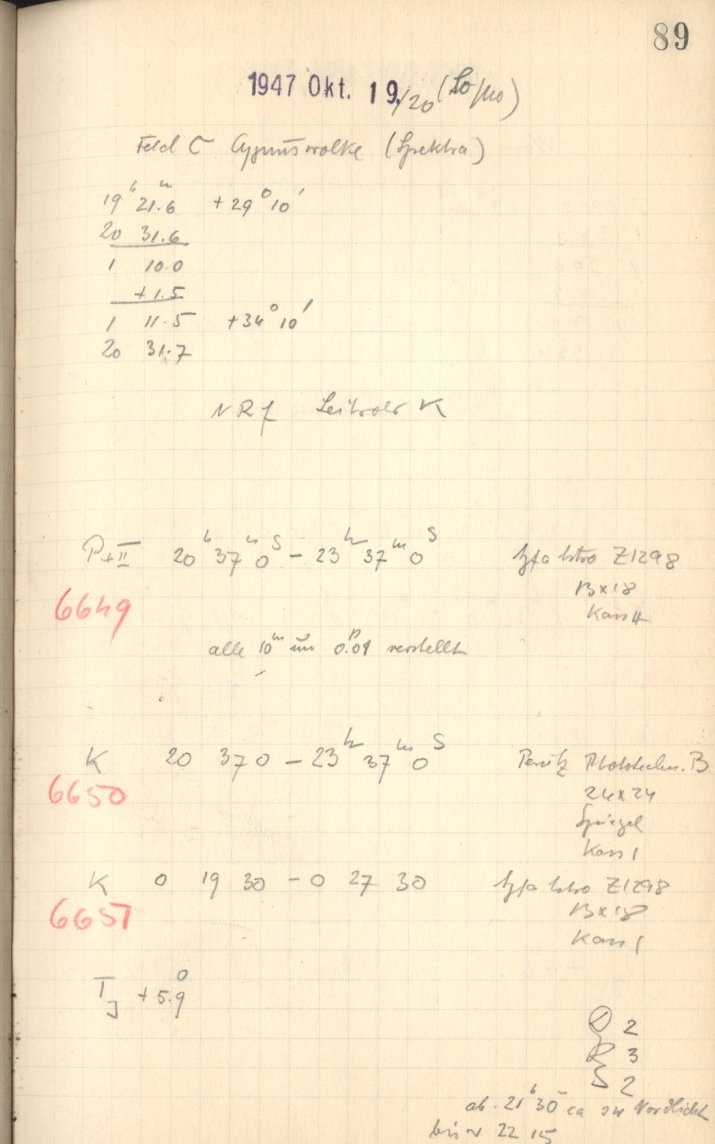 89
1947 Okt. 19./20 (So/Mo)
Feld C Cygnuswolke (Spektra)
19ʰ 21.6ᵐ +29° 10'
20 31.6
1 10.0
+1.5
1 11.5 +34° 10'
20 31.7
NRf K
P+II 20ʰ 37ᵐ 0ˢ – 23ʰ 37ᵐ 0ˢ Agfa Astro Z1298
6649 13x18
Kass 4
alle 10ᵐ um 0.01 verstellt
K 20 37 0 – 23ʰ 37ᵐ 0ˢ Perutz Phototechn. B
6650 24x24
Spiegel
Kass 1
K 0 19 30 – 0 27 30 Agfa Astro Z1298
6651 13x18
Kass 1
T_J +5.9°
2
R 3
S 2
ab 21ʰ 30ᵐ ca Nordlicht
bis 22 15